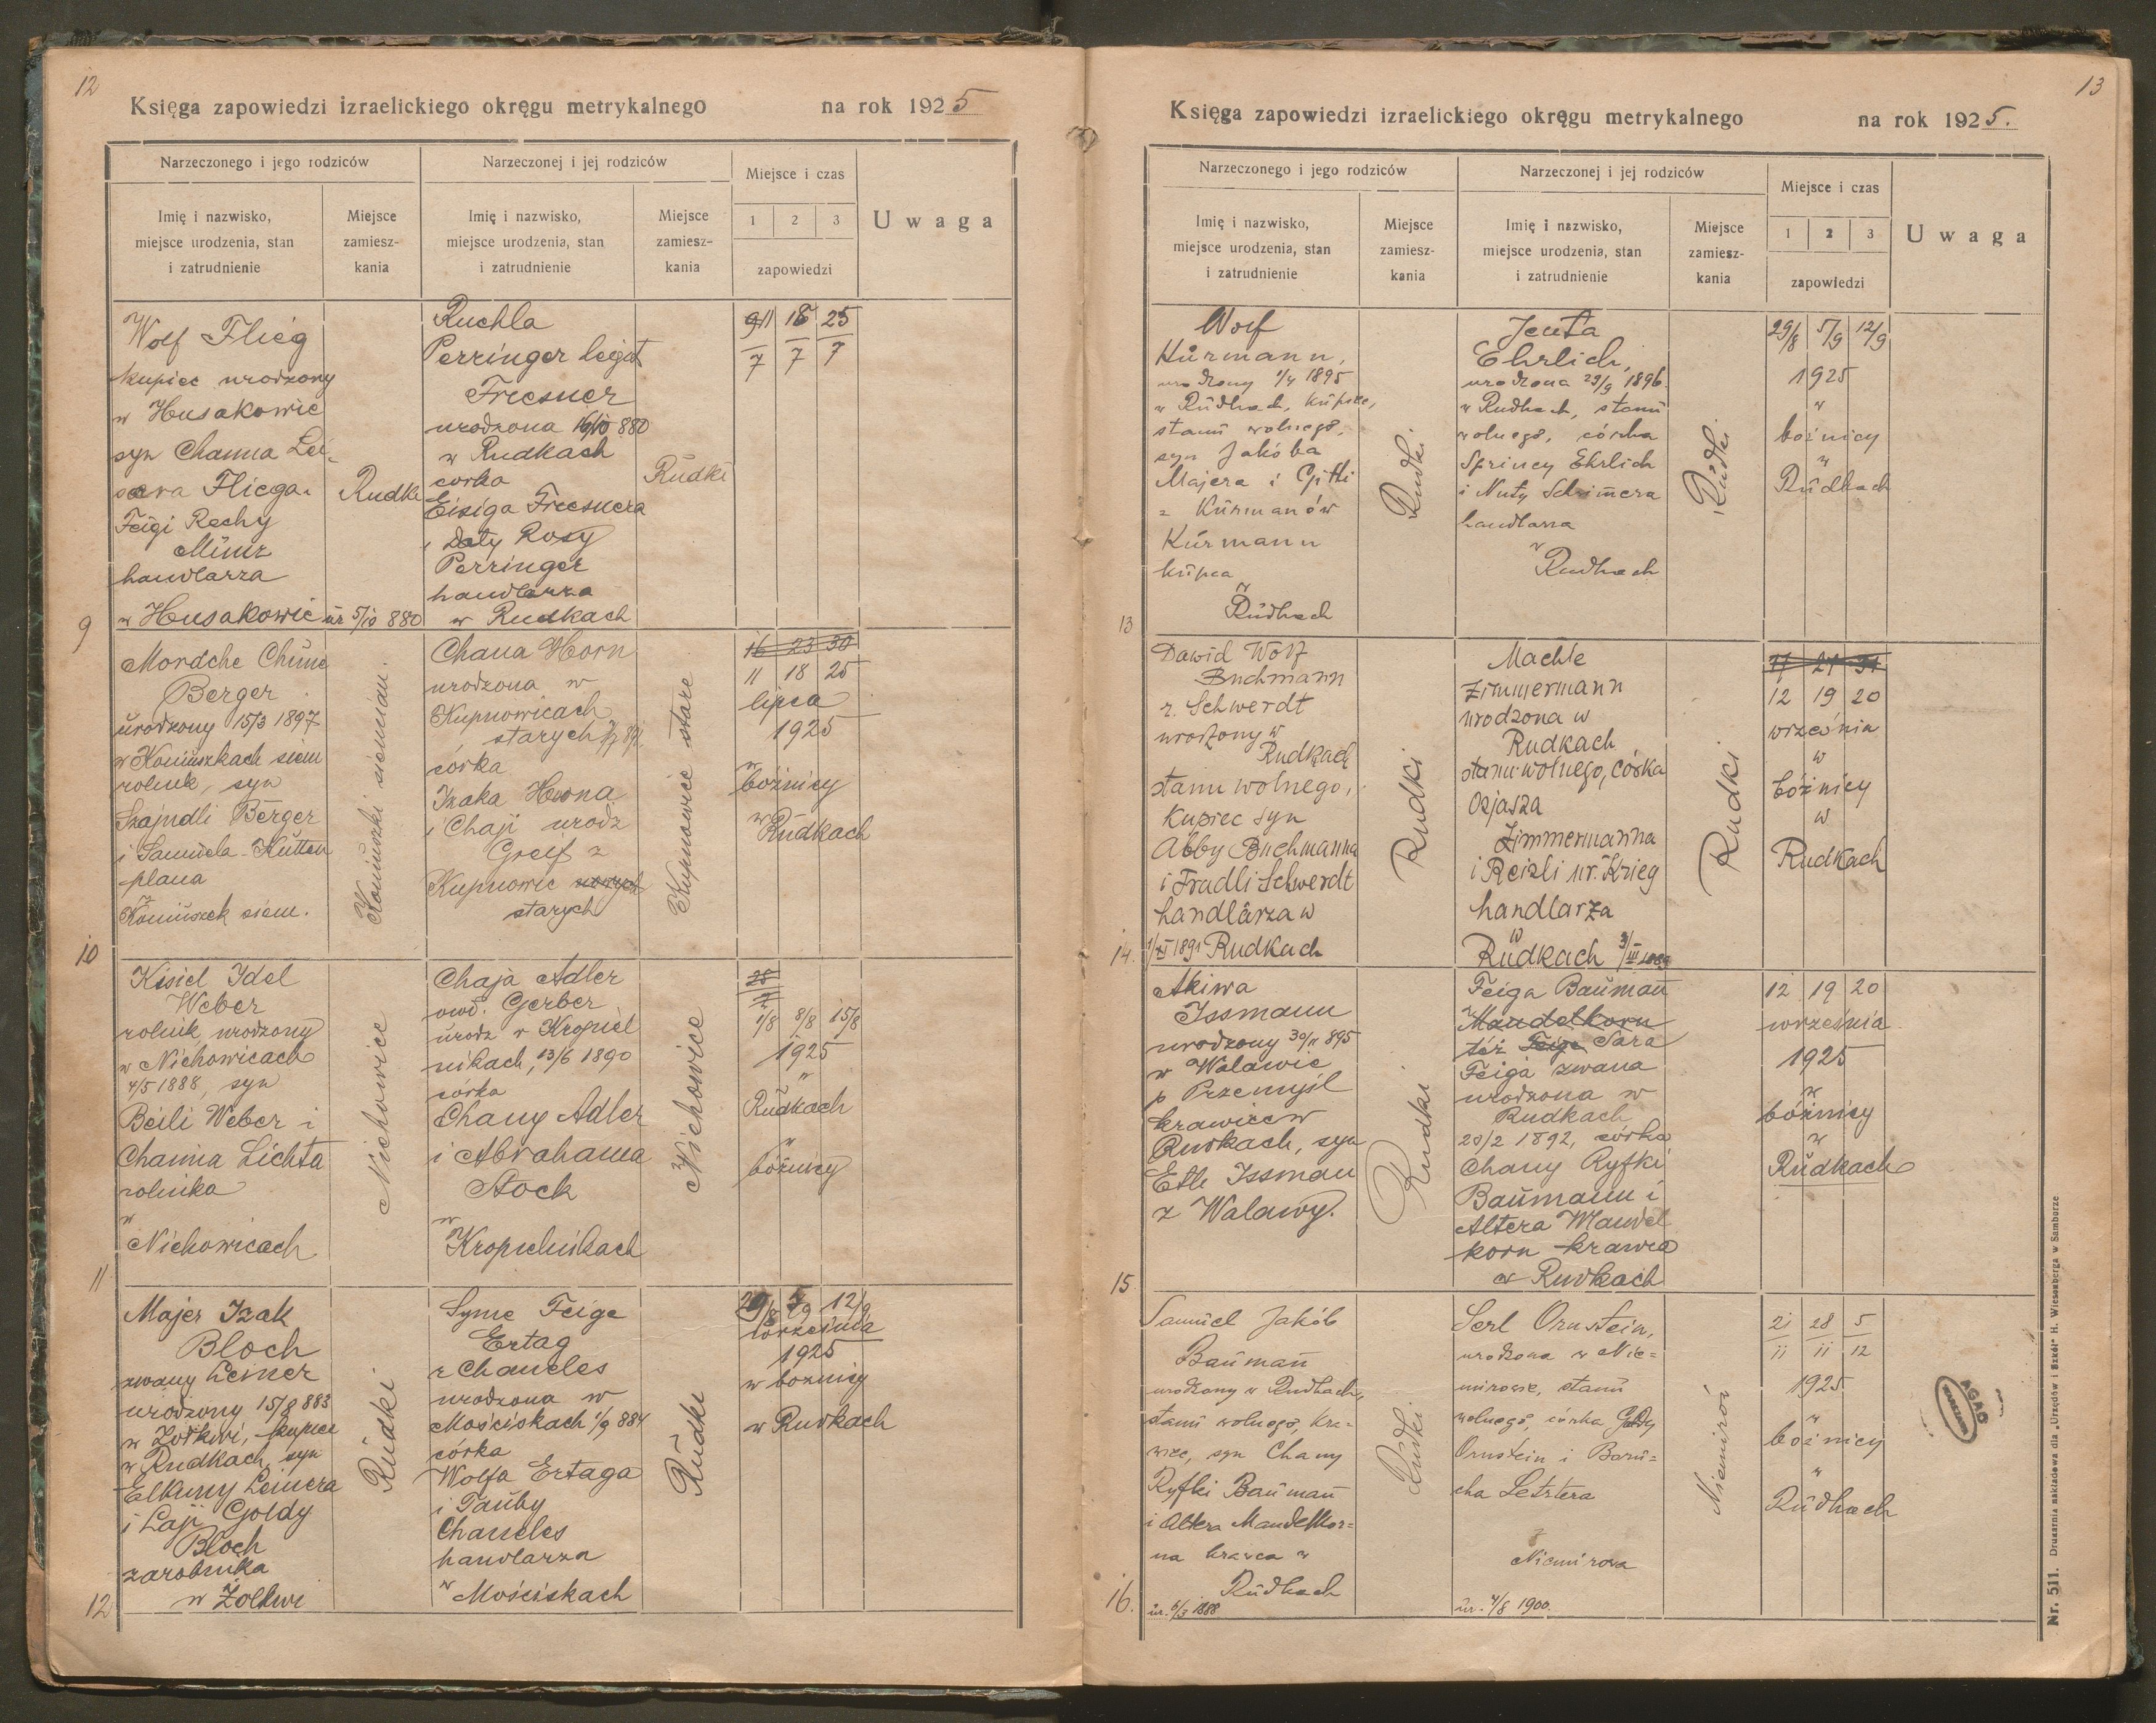 12
Księga zapowiedzi izraelickiego okręgu metrykalnego na rok 1925
Narzeczonego i jego rodziców
Narzeczonej i jej rodziców
Miejsce i czas
Uwaga
Imię i nazwisko,
miejsce urodzenia, stan
i zatrudnienie
Miejsce
zamiesz-
kania
Imię i nazwisko,
miejsce urodzenia, stan
i zatrudnienie
Miejsce
zamiesz-
kania
1 2 3
zapowiedzi
9
Wolf Flieg
kupiec urodzony
w Husakowie
syn Chaima Lei-
Fliega
Feigi Rechy
Münz
handlarza
w Husakowie ur 5/10 880
Rudki
Ruchla
Perringer legit
Friesner
urodzona 16/10 880
w Rudkach
corka
Eisiga Friesnera
i Daty Rosy
Perringer
handlarza
w Rudkach
Rudki
11 18 25
7 7 7
10
Mordche Chune
Berger
urodzony 15/3 1897
w Koniuszkach siem
rolnik, syn
Szajndli Berger
i Samuela Hütten
plana
z
Koniuszek siem.
Koniuszki siemian.
Chana Horn
urodzona w
Kupnowicach
starych
córka
Izaka Horna
i Chaji urodz
Greif z
Kupnowic nowych
starych
Kupnowice stare
16 23 30
11 18 25
lipca
1925
w
bóżnicy
w Rudkach
11
Kisiel Idel
Weber
rolnik, urodzony
w Nichowicach
4/5 1888, syn
Beili Weber i
Chaima Lichta
rolnika
w
Nichowicach
Nichowice
Chaja Adler
owd. Gerber
urodz w Kropiel
nikach, 13/6 1890
córka
Chany Adler
i Abrahama
Stock
w
Kropielnikach
Nichowice
25
7
1/8 8/8 15/8
1925
w
Rudkach
w
bóżnicy
12
Majer Izak
Bloch
zwany Leiner
urodzony 15/8 883
w Żółkwi, kupiec
w Rudkach, syn
Elkuny Leinera
i Łaji Goldy
Bloch
zarobnika
w Żółkwi
Rudki
Syme Feige
Ertag
r Chaneles
urodzona w
Mościskach 1/9 884
córka
Wolfa Ertaga
i Tauby
Chaneles
handlarza
w Mościskach
Rudki
29/8 5/9 12/9
września
1925
w bożnicy
w Rudkach
13
Księga zapowiedzi izraelickiego okręgu metrykalnego na rok 1925.
Narzeczonego i jego rodziców
Narzeczonej i jej rodziców
Miejsce i czas
Uwaga
Imię i nazwisko,
miejsce urodzenia, stan
i zatrudnienie
Miejsce
zamiesz-
kania
Imię i nazwisko,
miejsce urodzenia, stan
i zatrudnienie
Miejsce
zamiesz-
kania
1 2 3
zapowiedzi
13
Wolf
Kurmann,
urodzony 1/4 1895
w Rudkach, kupiec,
stanu wolnego,
syn Jakóba
Majera i Gitli
z Kurmanów
Kurmann
kupca
w
Rudkach
Rudki
Jenta
Ehrlich,
urodzona 29/9 1896
w Rudkach, stanu
wolnego, córka
Sprincy Ehrlich
i Nuty
handlarza
w
Rudkach
Rudki
29/8 5/9 12/9
1925
w
bożnicy
w
Rudkach
14.
Dawid Wolf
Buchmann
r. Schwerdt
urodzony w
Rudkach
stanu wolnego,
kupiec syn
Abby Buchmanna
i Fradli Schwerdt
handlarza w
1/XI 1891 Rudkach
Rudki
Machle
Zimmermann
urodzona w
Rudkach
stanu wolnego, córka
Ozjasza
Zimmermanna
i Reizli ur. Krieg
handlarza
w
Rudkach
Rudki
12 19 20
września
w
bóżnicy
w
Rudkach
15.
Akiwa
Issmann
urodzony 30/11 895
w Walawie
p Przemyśl
krawiec w
Rudkach, syn
Etle Issman
z Walawy.
Rudki
Feiga Bauman
Mandelkorn
też Feiga Sara
Feiga zwana
urodzona w
Rudkach
20/2 1892, córka
Chany Ryfki
Baumann i
Altera Mandel
korn krawca
w Rudkach
12 19 20
września
1925
w
bóżnicy
w
Rudkach
16.
Samuel Jakób
Bauman
urodzony w Rudkach,
stanu wolnego, kra-
wiec, syn Chany
Ryfki Bauman
i Altera Mandelkor-
na krawca w
Rudkach
ur. 6/3 1888
Rudki
Serl Ornstein,
urodzona w Nie-
mirowie, stanu
wolnego, córka Goldy
Ornstein i Boru-
cha Letztera
z
Niemirowa
ur. 4/8 1900.
Niemirów
21 28 5
11 11 12
1925
w
bożnicy
w
Rudkach
AGAD
WARSZAWA
Nr. 511. Drukarnia nakładowa dla „Urzędów i Szkół" H. Wiesenberga w Samborze